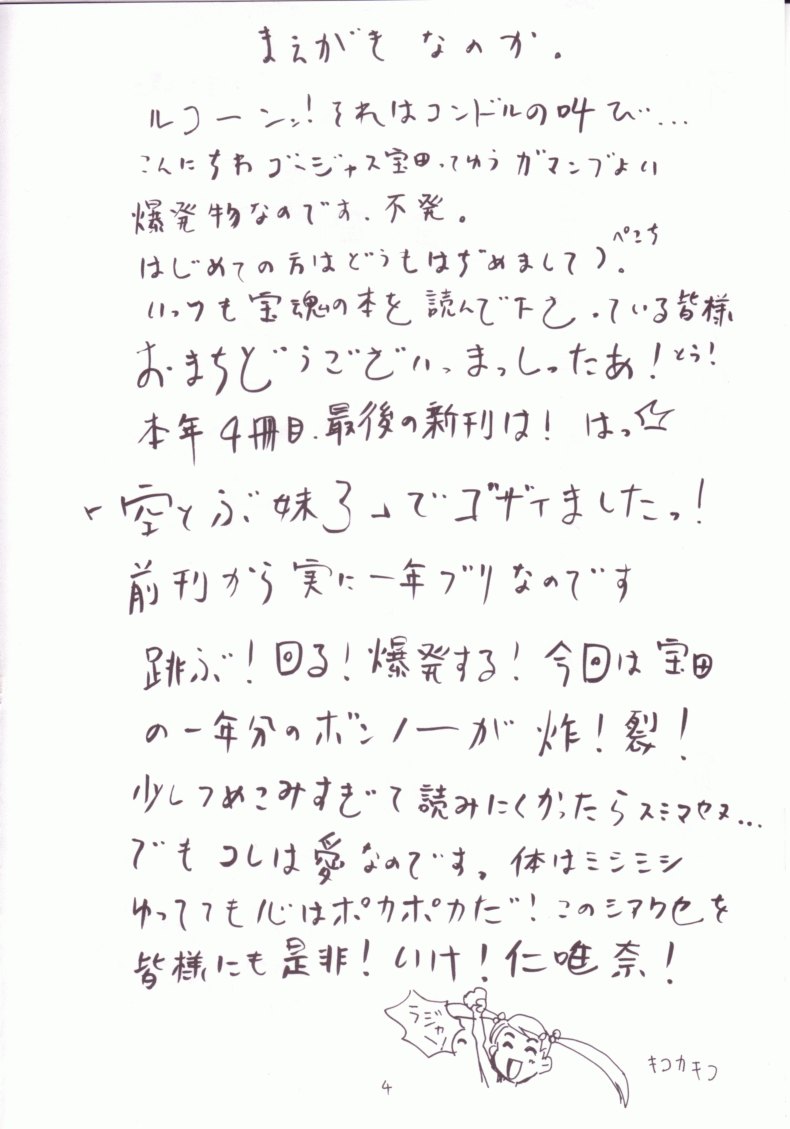 まえがきなのか。
ルコーンッ!それはコンドルの叫び…
こんにちわゴージャス宝田ってゆうガマンヅよい
爆発物なのです、不発。
はじめての方はどうもはぢめまして)。ぺこち
いっつも宝魂の本を読んで下さっている皆様
おまちどうございっまっしったあ!とう!
本年4冊目、最後の新刊は!はっ☆
「空とぶ妹3」でゴザイましたっ!
前刊から実に一年ブリなのです
跳ぶ!回る!爆発する!今回は宝田
の一年分のボンノーが炸!裂!
少しつめこみすぎて読みにくかったらスミマセヌ…
でもコレは愛なのです。体はミシミシ
ゆってても心はポカポカだ!このシアワセを
皆様にも是非!いけ!仁唯奈!
ラジャー!
キコカキコ
4